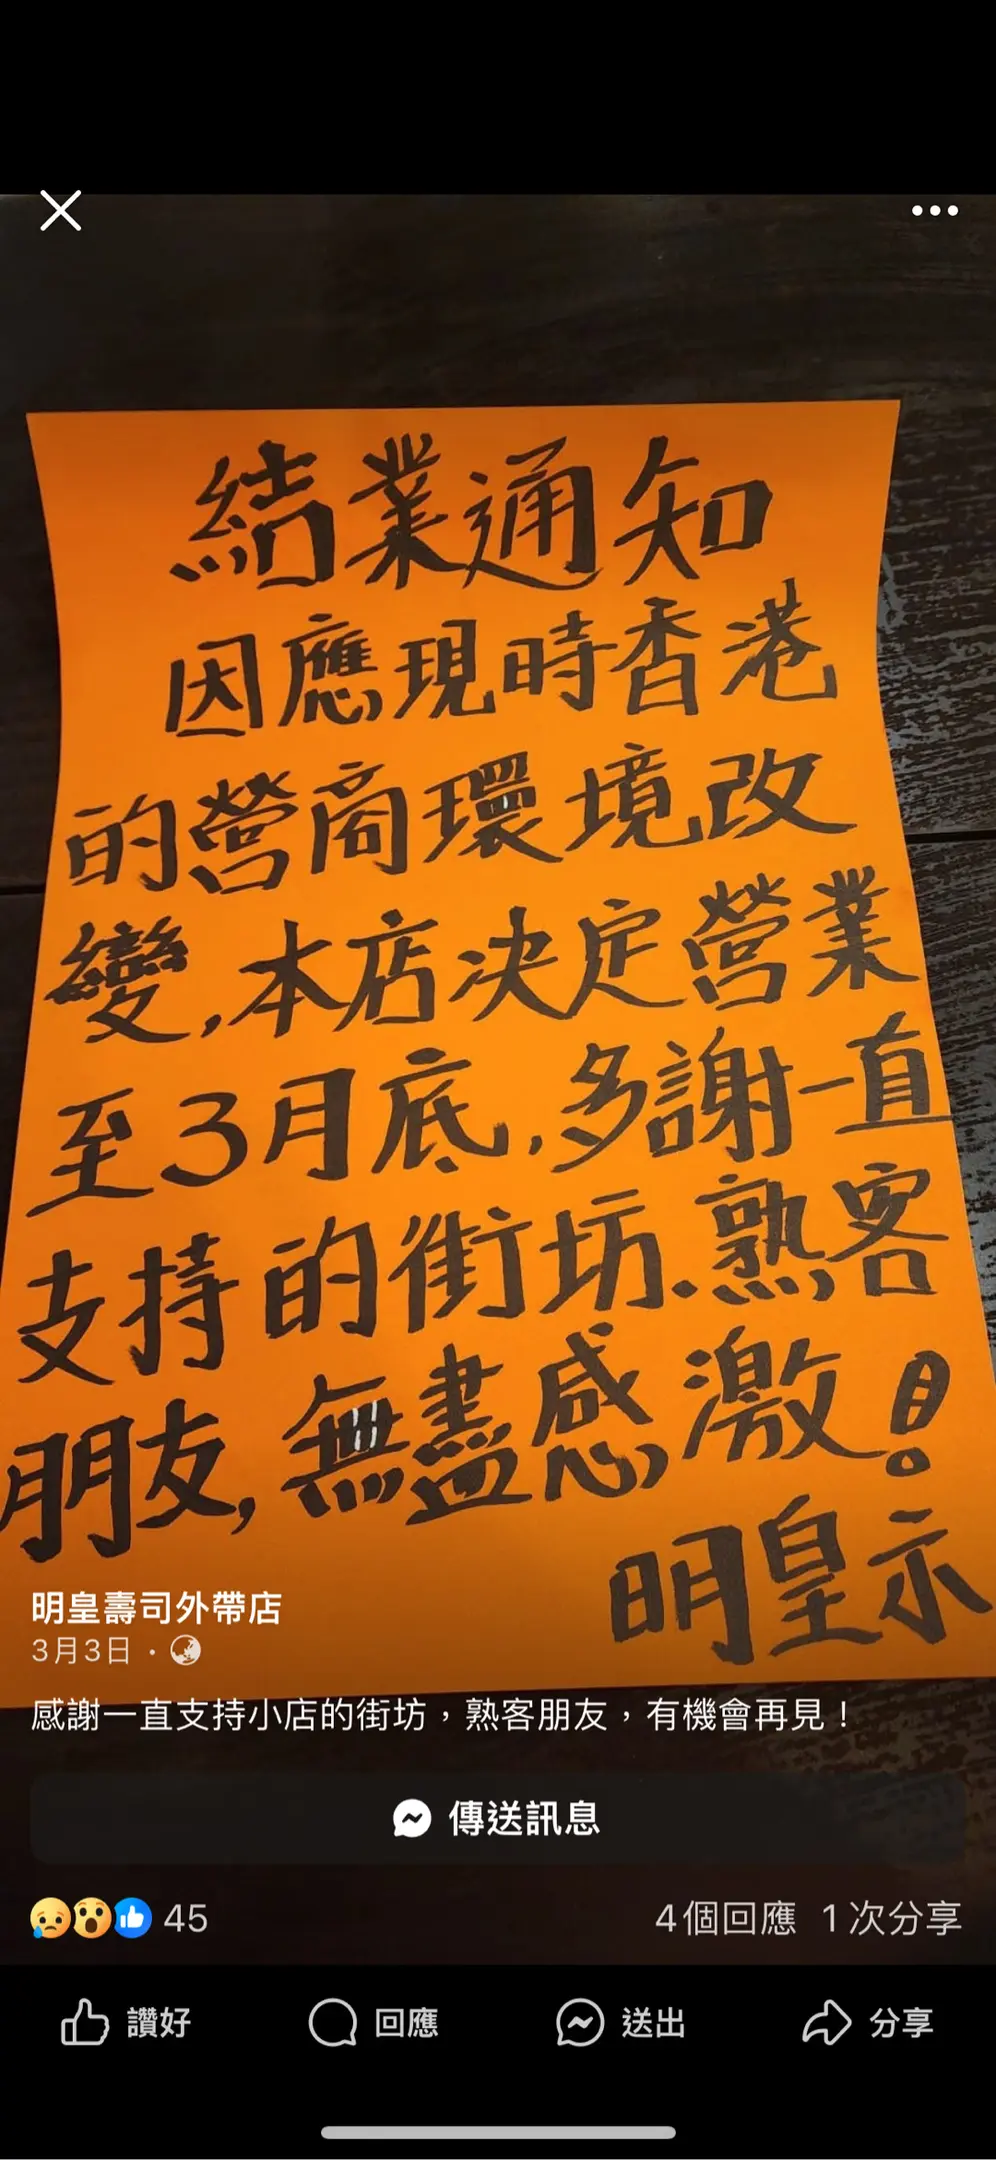 結業通知
因應現時香港
的營商環境改
變,本店決定營業
至3月底,多謝一直
支持的街坊.熟客
朋友,無盡感激!
明皇示
明皇壽司外帶店
3月3日 ·
感謝一直支持小店的街坊，熟客朋友，有機會再見！
傳送訊息
45 4個回應 1次分享
讚好 回應 送出 分享